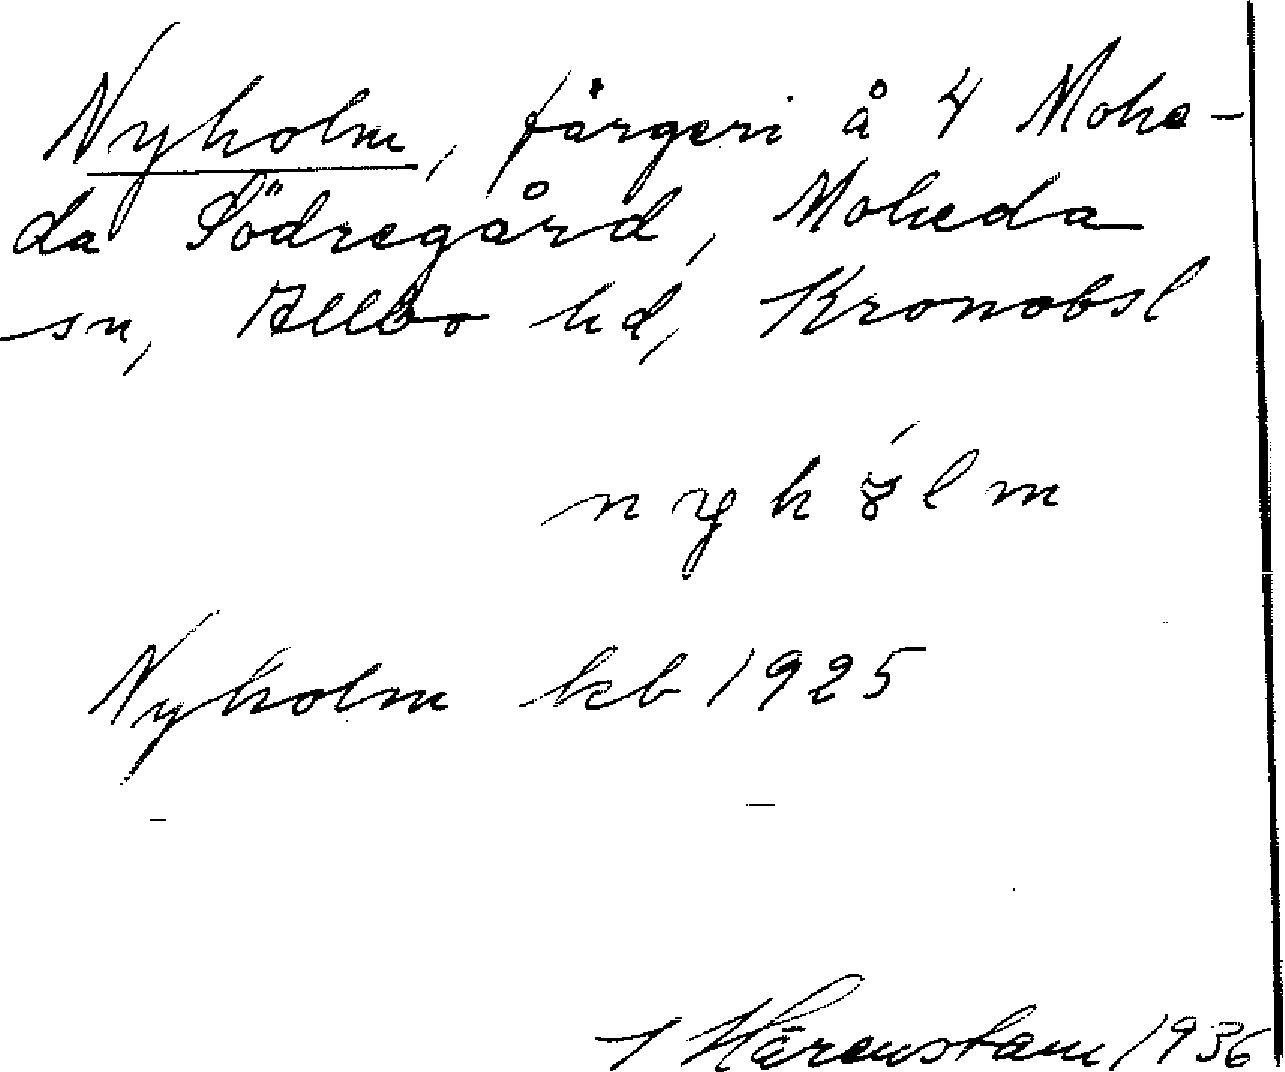 Nyholm, färgeri å 4 Mohe-
da Södregård, Moheda
sn, Allbo hd, Kronobsl
Nyholm kb 1925
Härenstam 1936